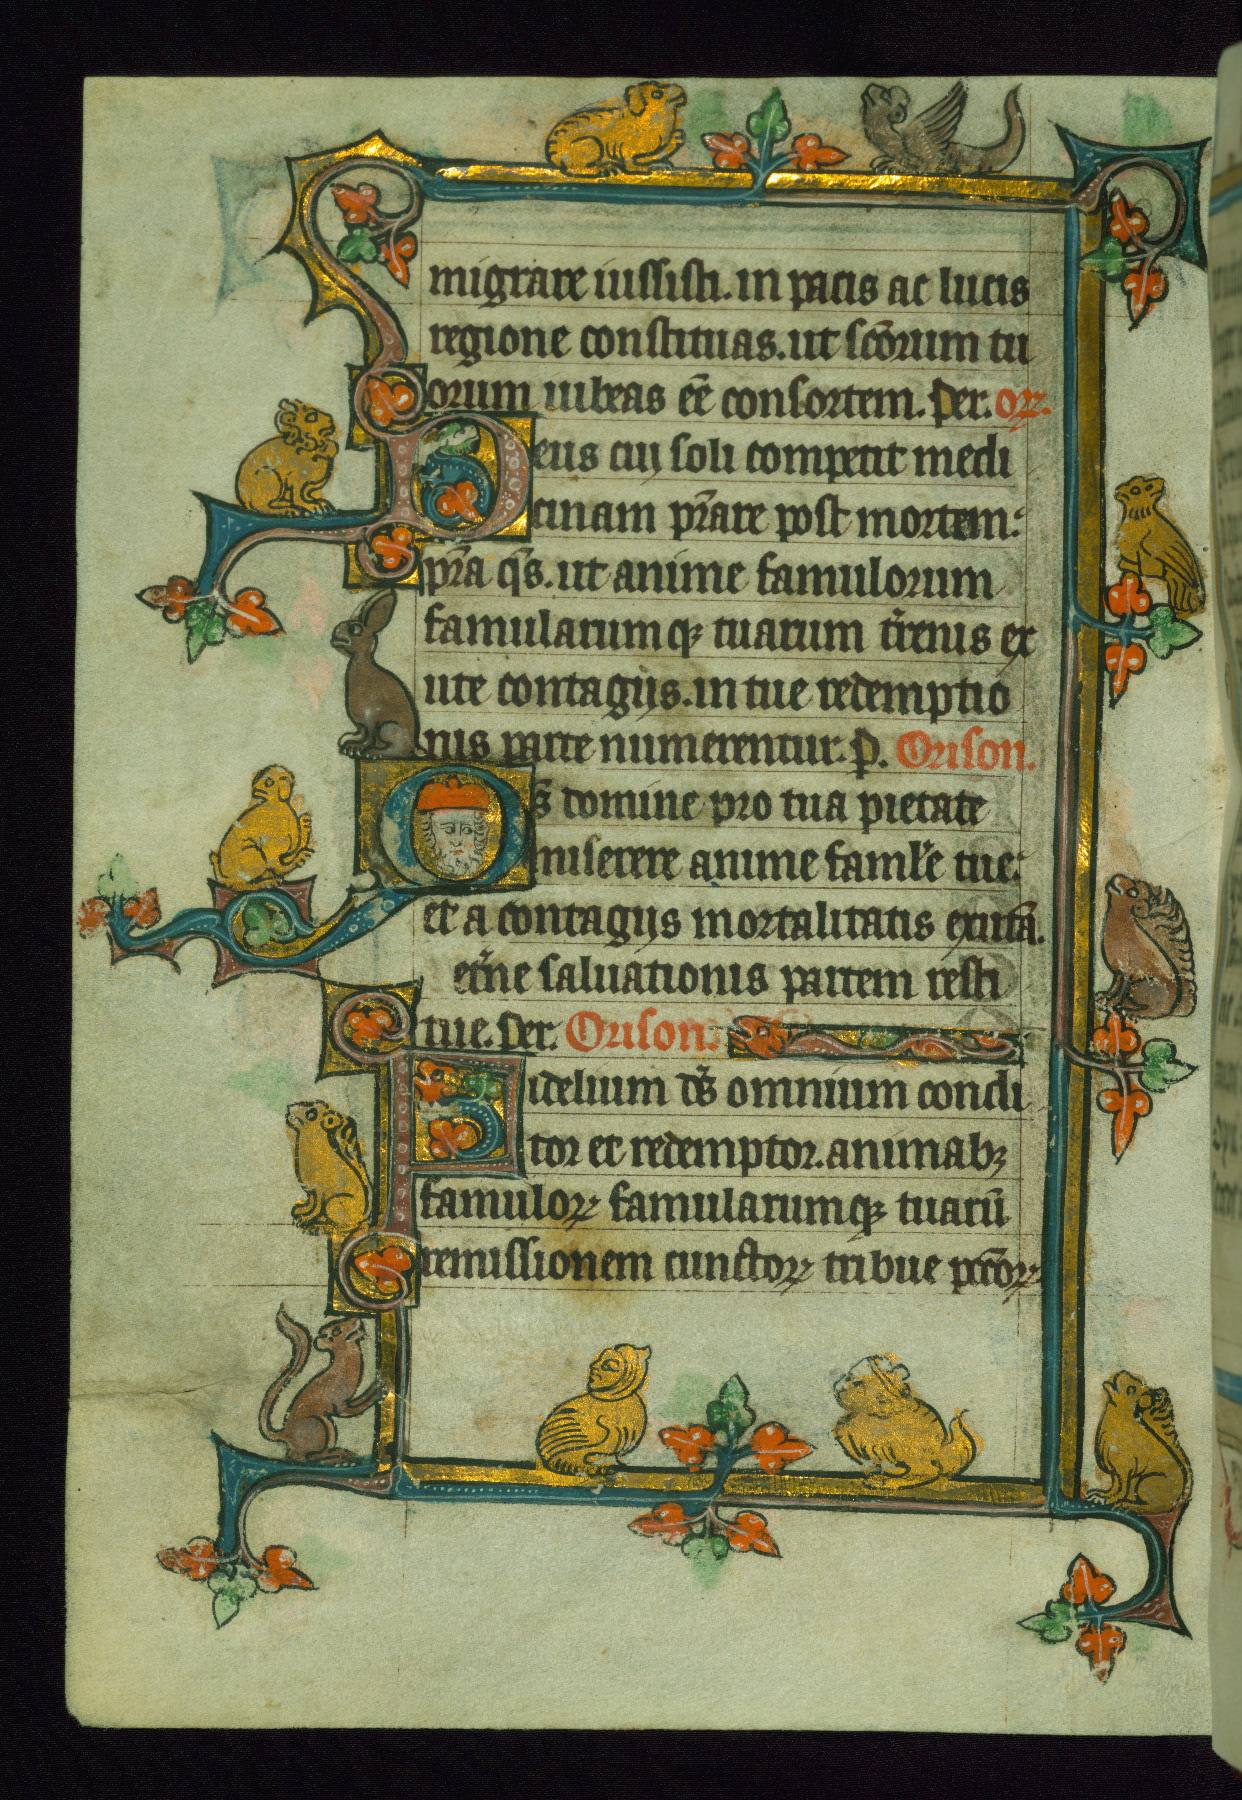 migrare iussisti. in pacis ac lucis
regione constituas. ut sc̄orum tu
orum iubeas eē consortem. Per. or̄.
Deus cui soli competit medi
cinam p̄rare post mortem:
p̄ra q̄s. ut anime famulorum
famularumqꝫ tuarum t̄renis ex
ute contagiis. in tue redemptio
nis parte numerentur. P. Orison.
Qs̄ domine pro tua pietate
miserere anime famłe tue:
et a contagiis mortalitatis exutā.
et̄ne saluationis partem resti
tue. Per. Orison:
Fidelium ds̄ omnium condi
tor et redemptor. animabꝫ
famuloꝝ famularumqꝫ tuarū
remissionem cunctoꝝ tribue pcc̄oꝝ